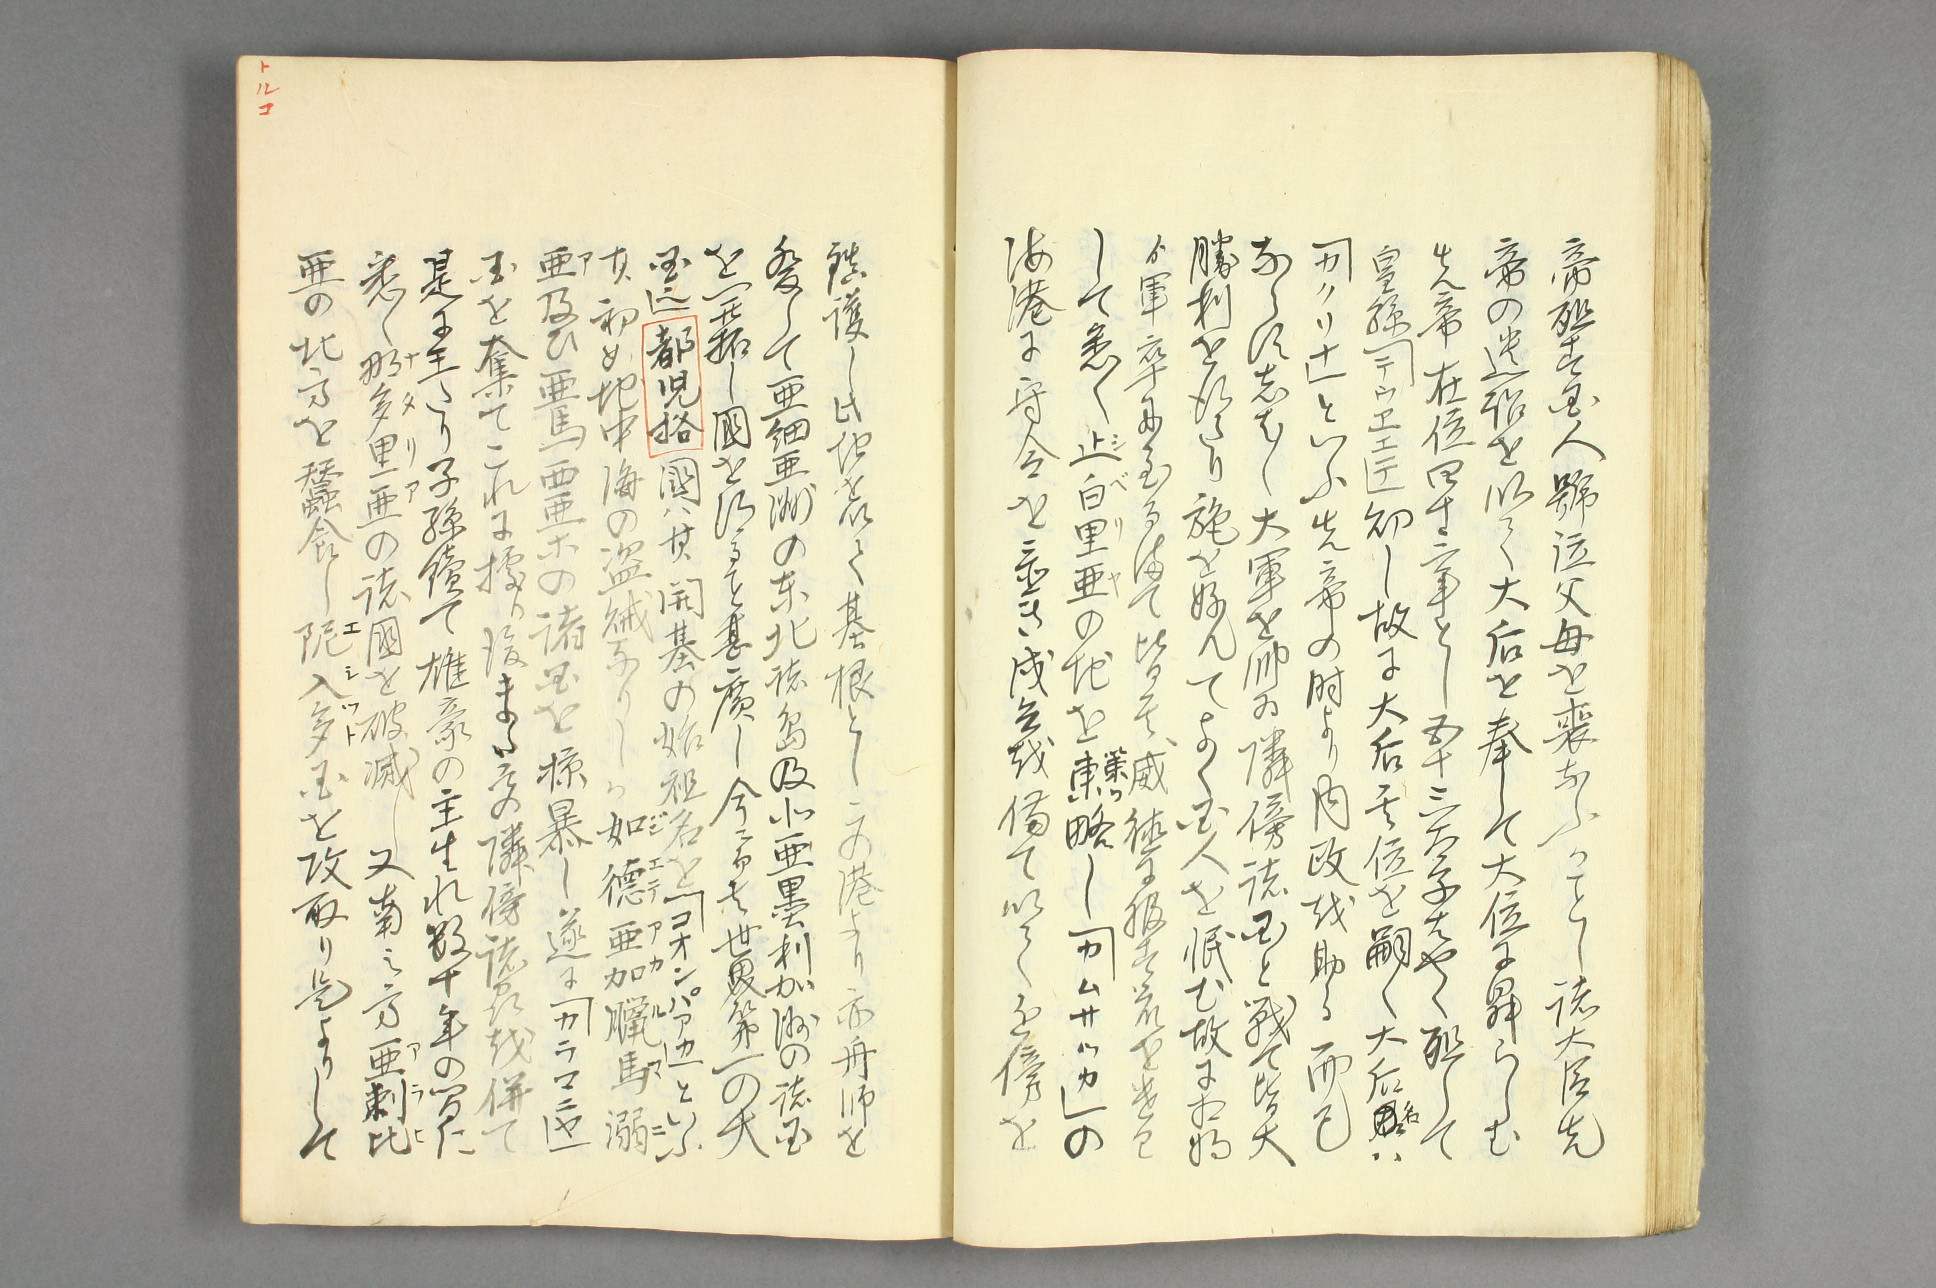 帝殂す国人號泣父母を喪ふことし諸大臣先
帝の遺詔を以て大后を奉して大位に昇らしむ
先帝在位四十二年とし五十三太子はやく殂して
皇孫幼し故に大后其位を嗣く大后名ハ
「カタリナ」といふ先帝の時より内政を助る而已
ならす志をし大軍を帥ゐ隣傍諸国と戦て皆大
勝利を得たり施を好んてよく国人を恤む故に
軍卒に至る迄て皆其威徳に
して悉く止白里亜の地を東略し「カムサツカ」の
シベリヤ
海港に守令を置き戍兵を備て以て近傍を
鎮護し此地を以て基根とし この港より亦舟師を
發して亜細亜洲の東北諸島及北亜墨利加洲の諸国
を開拓し國を得ること甚廣し今に至ては世界第一の大
国
都児格國ハ其開基の始祖名を「コオンパアカ」といふ
其初め地中海の盗賊なりしか如德亜加臘馬溺
ジユデアカルマニ
亜及ひ亜馬西亜等の諸国を掠暴し遂に「カラマニ
ア
国を奪てこれに據り後また の隣傍諸島を併て
是に王たり子孫續て雄豪の主生れ数十年の間に
悉く那多里亜の諸國を破滅し又南之方亜剌比
ナタリア
アラヒ
亜の北方を蠶食し阨入多国を攻取り是よりして
エシツト
トルコ